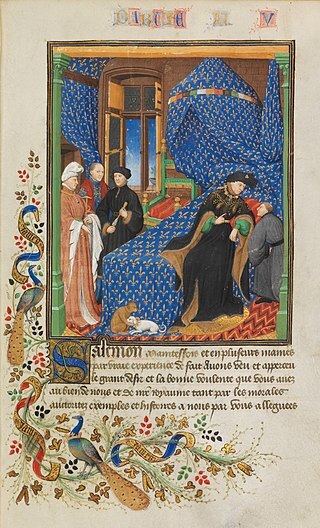 Salmon maintesfois et en pluseurs manieres
par vraie experience de fait Auons veu et apperceu
le grant desir et la bonne voulente que vous auez
au bien de nous et de nr̄e royaume tant par les morales
auctoritez exemples et histoires a nous par vous alleguees